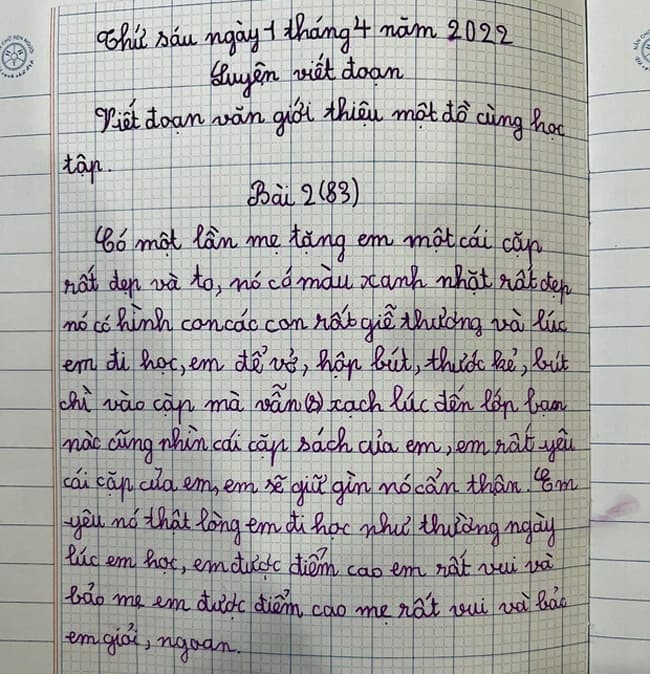 Thứ sáu ngày 1 tháng 4 năm 2022
Luyện viết đoạn
Viết đoạn văn giới thiệu một đồ cùng học
tập.
Bài 2 (83)
Có một lần mẹ tặng em một cái cặp
rất đẹp và to, nó có màu xanh nhặt rất đẹp
nó có hình con các con rất giễ thương và lúc
em đi học, em để vở, hộp bút, thước kẻ, bút
chì vào cặp mà vẫn (s) xạch lúc đến lớp bạn
nàc cũng nhìn cái cặp sách của em, em rất yêu
cái cặp của em, em sẽ giữ gìn nó cẩn thân. Em
yêu nó thật lòng em đi học như thường ngày
lúc em học, em được điểm cao em rất vui và
bảo mẹ em được điểm cao mẹ rất vui và bảo
em giỏi, ngoan.